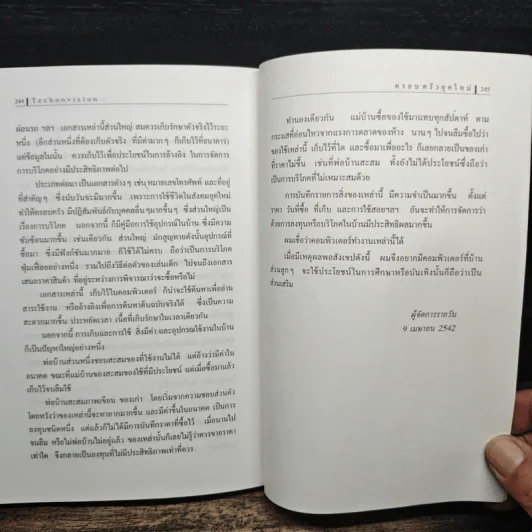 244 Technovision
ผ่อนรถ ฯลฯ เอกสารเหล่านี้ส่วนใหญ่ สมควรเก็บรักษาตัวจริงไว้ระยะ
หนึ่ง (อีกส่วนหนึ่งที่ต้องเก็บตัวจริง ที่มีค่ามาก ๆ ก็เก็บไว้ที่ธนาคาร)
แต่ข้อมูลในนั้น ควรเก็บไว้เพื่อประโยชน์ในการอ้างอิง ในการจัดการ
การบริโภคอย่างมีประสิทธิภาพต่อไป
ประเภทต่อมา เป็นเอกสารต่าง ๆ เช่น หมายเลขโทรศัพท์ และที่อยู่
ที่สำคัญๆ ซึ่งนับวันจะมีมากขึ้น เพราะการใช้ชีวิตในสังคมยุคใหม่
ทำให้ครอบครัว มีปฏิสัมพันธ์กับบุคคลอื่นๆมากขึ้นๆ ซึ่งส่วนใหญ่เป็น
เรื่องการบริโภค นอกจากนี้ ก็มีคู่มือการใช้อุปกรณ์ในบ้าน ซึ่งมีความ
ซับซ้อนมากขึ้น เช่นเดียวกัน ส่วนใหญ่ มักสูญหายดังนั้นอุปกรณ์ที่
ซื้อมา ซึ่งมีฟังก์ชันมากมาย ก็ใช้ได้ไม่ครบ ถือว่าเป็นการบริโภค
ฟุ่มเฟือยอย่างหนึ่ง รวมไปถึงวิธีต่อของเล่นเด็ก ไปจนถึงเอกสาร
เสนอราคาสินค้า ที่อยู่ระหว่างการพิจารณาว่าจะซื้อหรือไม่
เอกสารเหล่านี้ เก็บไว้ในคอมพิวเตอร์ ก็น่าจะใช้ค้นหาเพื่ออ่าน
สาระใช้งาน หรืออ้างอิงเพื่อการค้นหาต้นฉบับจริงได้ ซึ่งเป็นความ
สะดวกมากขึ้น ประหยัดเวลา เนื้อที่เก็บรักษาในเวลาเดียวกัน
นอกจากนี้ การเก็บและการใช้ สิ่งมีค่า และอุปกรณ์ใช้งานในบ้าน
ก็เป็นปัญหาใหญ่อย่างหนึ่ง
พ่อบ้านส่วนหนึ่งชอบสะสมของที่ใช้งานไม่ได้ แต่อ้างว่ามีค่าใน
อนาคต ขณะที่แม่บ้านของสะสมของใช้ที่มีประโยชน์ แต่เมื่อซื้อมาแล้ว
เก็บไว้จนลืมใช้
พ่อบ้านสะสมภาพเขียน ของเก่า โดยเริ่มจากความชอบส่วนตัว
โดยหวังว่าของเหล่านี้จะหายากมากขึ้น และมีค่าขึ้นในอนาคต เป็นการ
ลงทุนชนิดหนึ่ง แต่แล้วก็ไม่ได้มีการบันทึกราคาที่ซื้อไว้ เมื่อนานไป
จนลืม หรือไม่พ่อบ้านไม่อยู่แล้ว ของเหล่านั้นก็เลยไม่รู้ว่าควรขายราคา
เท่าใด จึงกลายเป็นลงทุนที่ไม่มีประสิทธิภาพเท่าที่ควร
ครอบครัวยุคใหม่ 245
ทำนองเดียวกัน แม่บ้านซื้อของใช้มาแทบทุกสัปดาห์ ตาม
กระแสที่อ่อนไหวจากแรงการตลาดของห้าง นานๆ ไปจนลืมซื้อไปว่า
ของใช้เหล่านี้ เก็บไว้ที่ใด และซื้อมาเพื่ออะไร ก็เลยกลายเป็นของเก่า
ที่ราคาไม่ขึ้น เช่นที่พ่อบ้านสะสม ทั้งยังไม่ได้ประโยชน์ซึ่งถือว่า
เป็นการบริโภคที่ไม่เหมาะสมด้วย
การบันทึกรายการสิ่งของเหล่านี้ มีความจำเป็นมากขึ้น ตั้งแต่
ราคา วันที่ซื้อ ที่เก็บ และการใช้สอยฯลฯ อันจะทำให้การจัดการว่า
ด้วยการลงทุนหรือบริโภคในบ้านมีประสิทธิผลมากขึ้น
ผมเชื่อว่าคอมพิวเตอร์ทำงานเหล่านี้ได้
เมื่อมีเหตุผลพอสังเขปดังนี้ ผมจึงอยากมีคอมพิวเตอร์ที่บ้าน
ส่วนลูกๆ จะใช้ประโยชน์ในการศึกษาหรือบันเทิงนั้นก็ถือว่าเป็น
ส่วนเสริม
ผู้จัดการรายวัน
9 เมษายน 2542